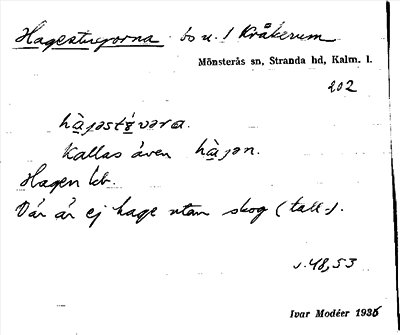 Hagestugorna bo u. / Kråkerum
Mönsterås sn, Stranda hd, Kalm. l.
202
hàjəst
Kallas även hàjən.
Hagen kb.
Där är ej hage utan skog (tall-).
s. 48, 53
Ivar Modéer 1936